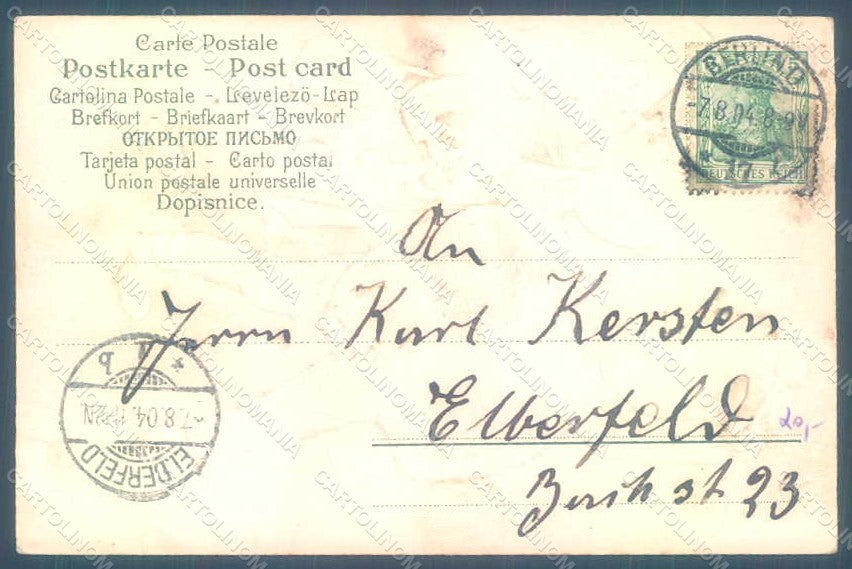 Carte Postale
Postkarte - Post card
Cartolina Postale - Levelező-Lap
Brefkort - Briefkaart - Brevkort
ОТКРЫТОЕ ПИСЬМО
Tarjeta postal - Carto postal
Union postale universelle
Dopisnice.
BERLIN O
-7.8.04.8-9V
* 17
DEUTSCHES REICH
An
Herrn Karl Kersten
Elberfeld
20,-
23
-7.8.04.
ELBERFELD
CARTOLINOMANIA